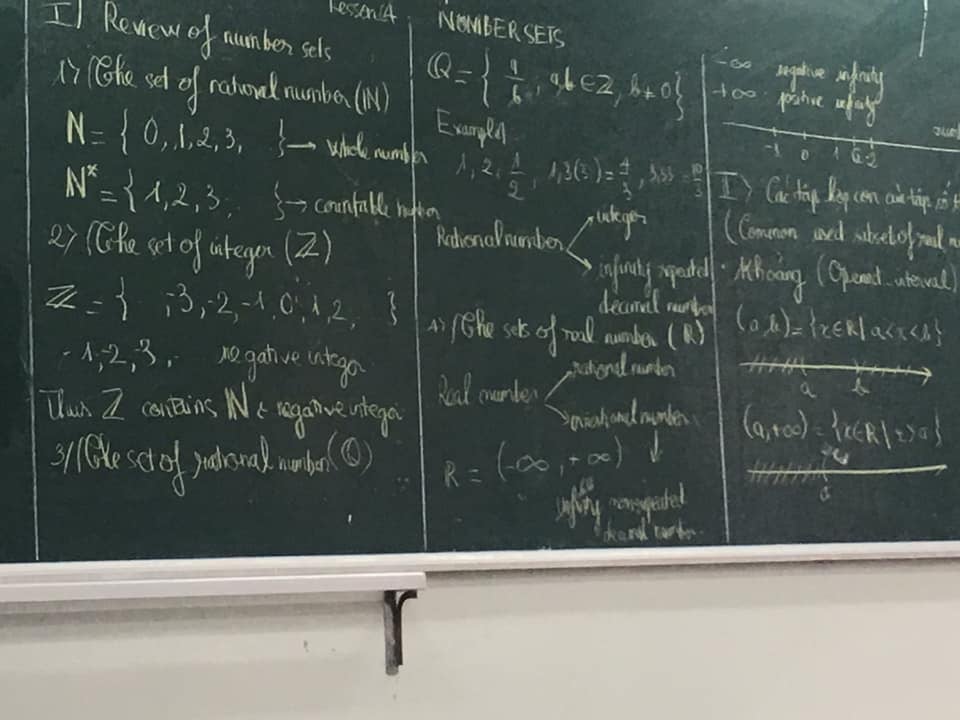 Lesson 4
NUMBER SETS
I) Review of number sets
1) The set of rational number (N)
N = { 0, 1, 2, 3, } → whole number
N* = { 1, 2, 3, } → countable number
2) The set of integer (Z)
Z = { , -3, -2, -1, 0, 1, 2, }
-1, -2, -3, negative integer
Thus Z contains N & negative integer
3) The set of rational number (Q)
Q = { a/b, a, b ∈ Z, b ≠ 0 }
Example
1, 2, 1/2, 1,3(3) = 4/3, 3,33 = 10/3
Rational number
integer
infinity repeated
decimal number
4) The sets of real number (R)
Real number
rational number
irrational number
R = (-∞, +∞)
infinity nonrepeated
decimal number
-∞ negative infinity
+∞ positive infinity
-1 0 1 √2 2
I) Các tập hợp con của tập số
(Common used subset of real
• Khoảng (Opened interval)
(a, b) = {x ∈ R | a < x < b}
a b
(a, +∞) = {x ∈ R | x > a}
a